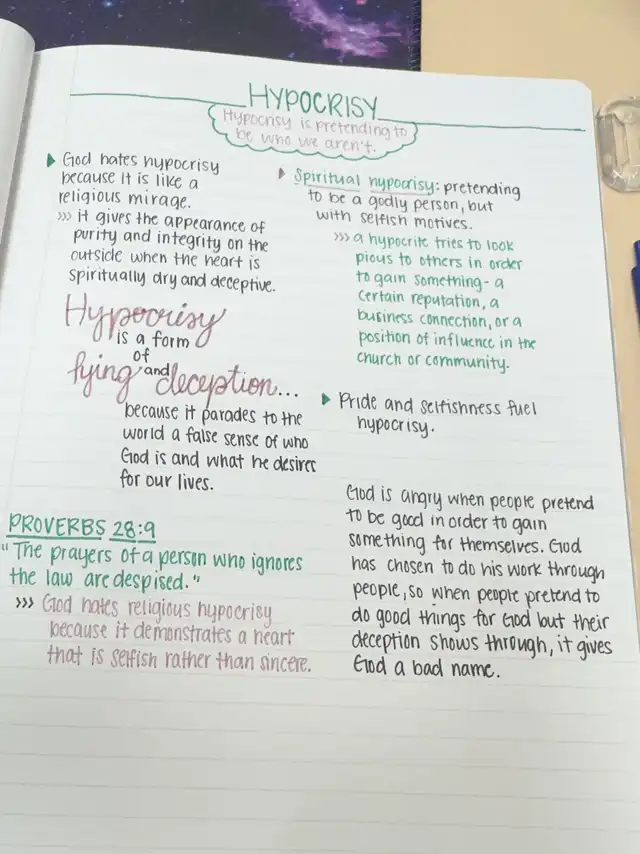 HYPOCRISY
Hypocrisy is pretending to
be who we aren't.
God hates hypocrisy
because it is like a
religious mirage.
>>> it gives the appearance of
purity and integrity on the
outside when the heart is
spiritually dry and deceptive.
Hypocrisy
is a form
of
lying and deception...
because it parades to the
world a false sense of who
God is and what he desires
for our lives.
PROVERBS 28:9
"The prayers of a person who ignores
the law are despised."
>>> God hates religious hypocrisy
because it demonstrates a heart
that is selfish rather than sincere.
Spiritual hypocrisy: pretending
to be a godly person, but
with selfish motives.
>>> a hypocrite tries to look
pious to others in order
to gain something- a
certain reputation, a
business connection, or a
position of influence in the
church or community.
Pride and selfishness fuel
hypocrisy.
God is angry when people pretend
to be good in order to gain
something for themselves. God
has chosen to do his work through
people, so when people pretend to
do good things for God but their
deception shows through, it gives
God a bad name.